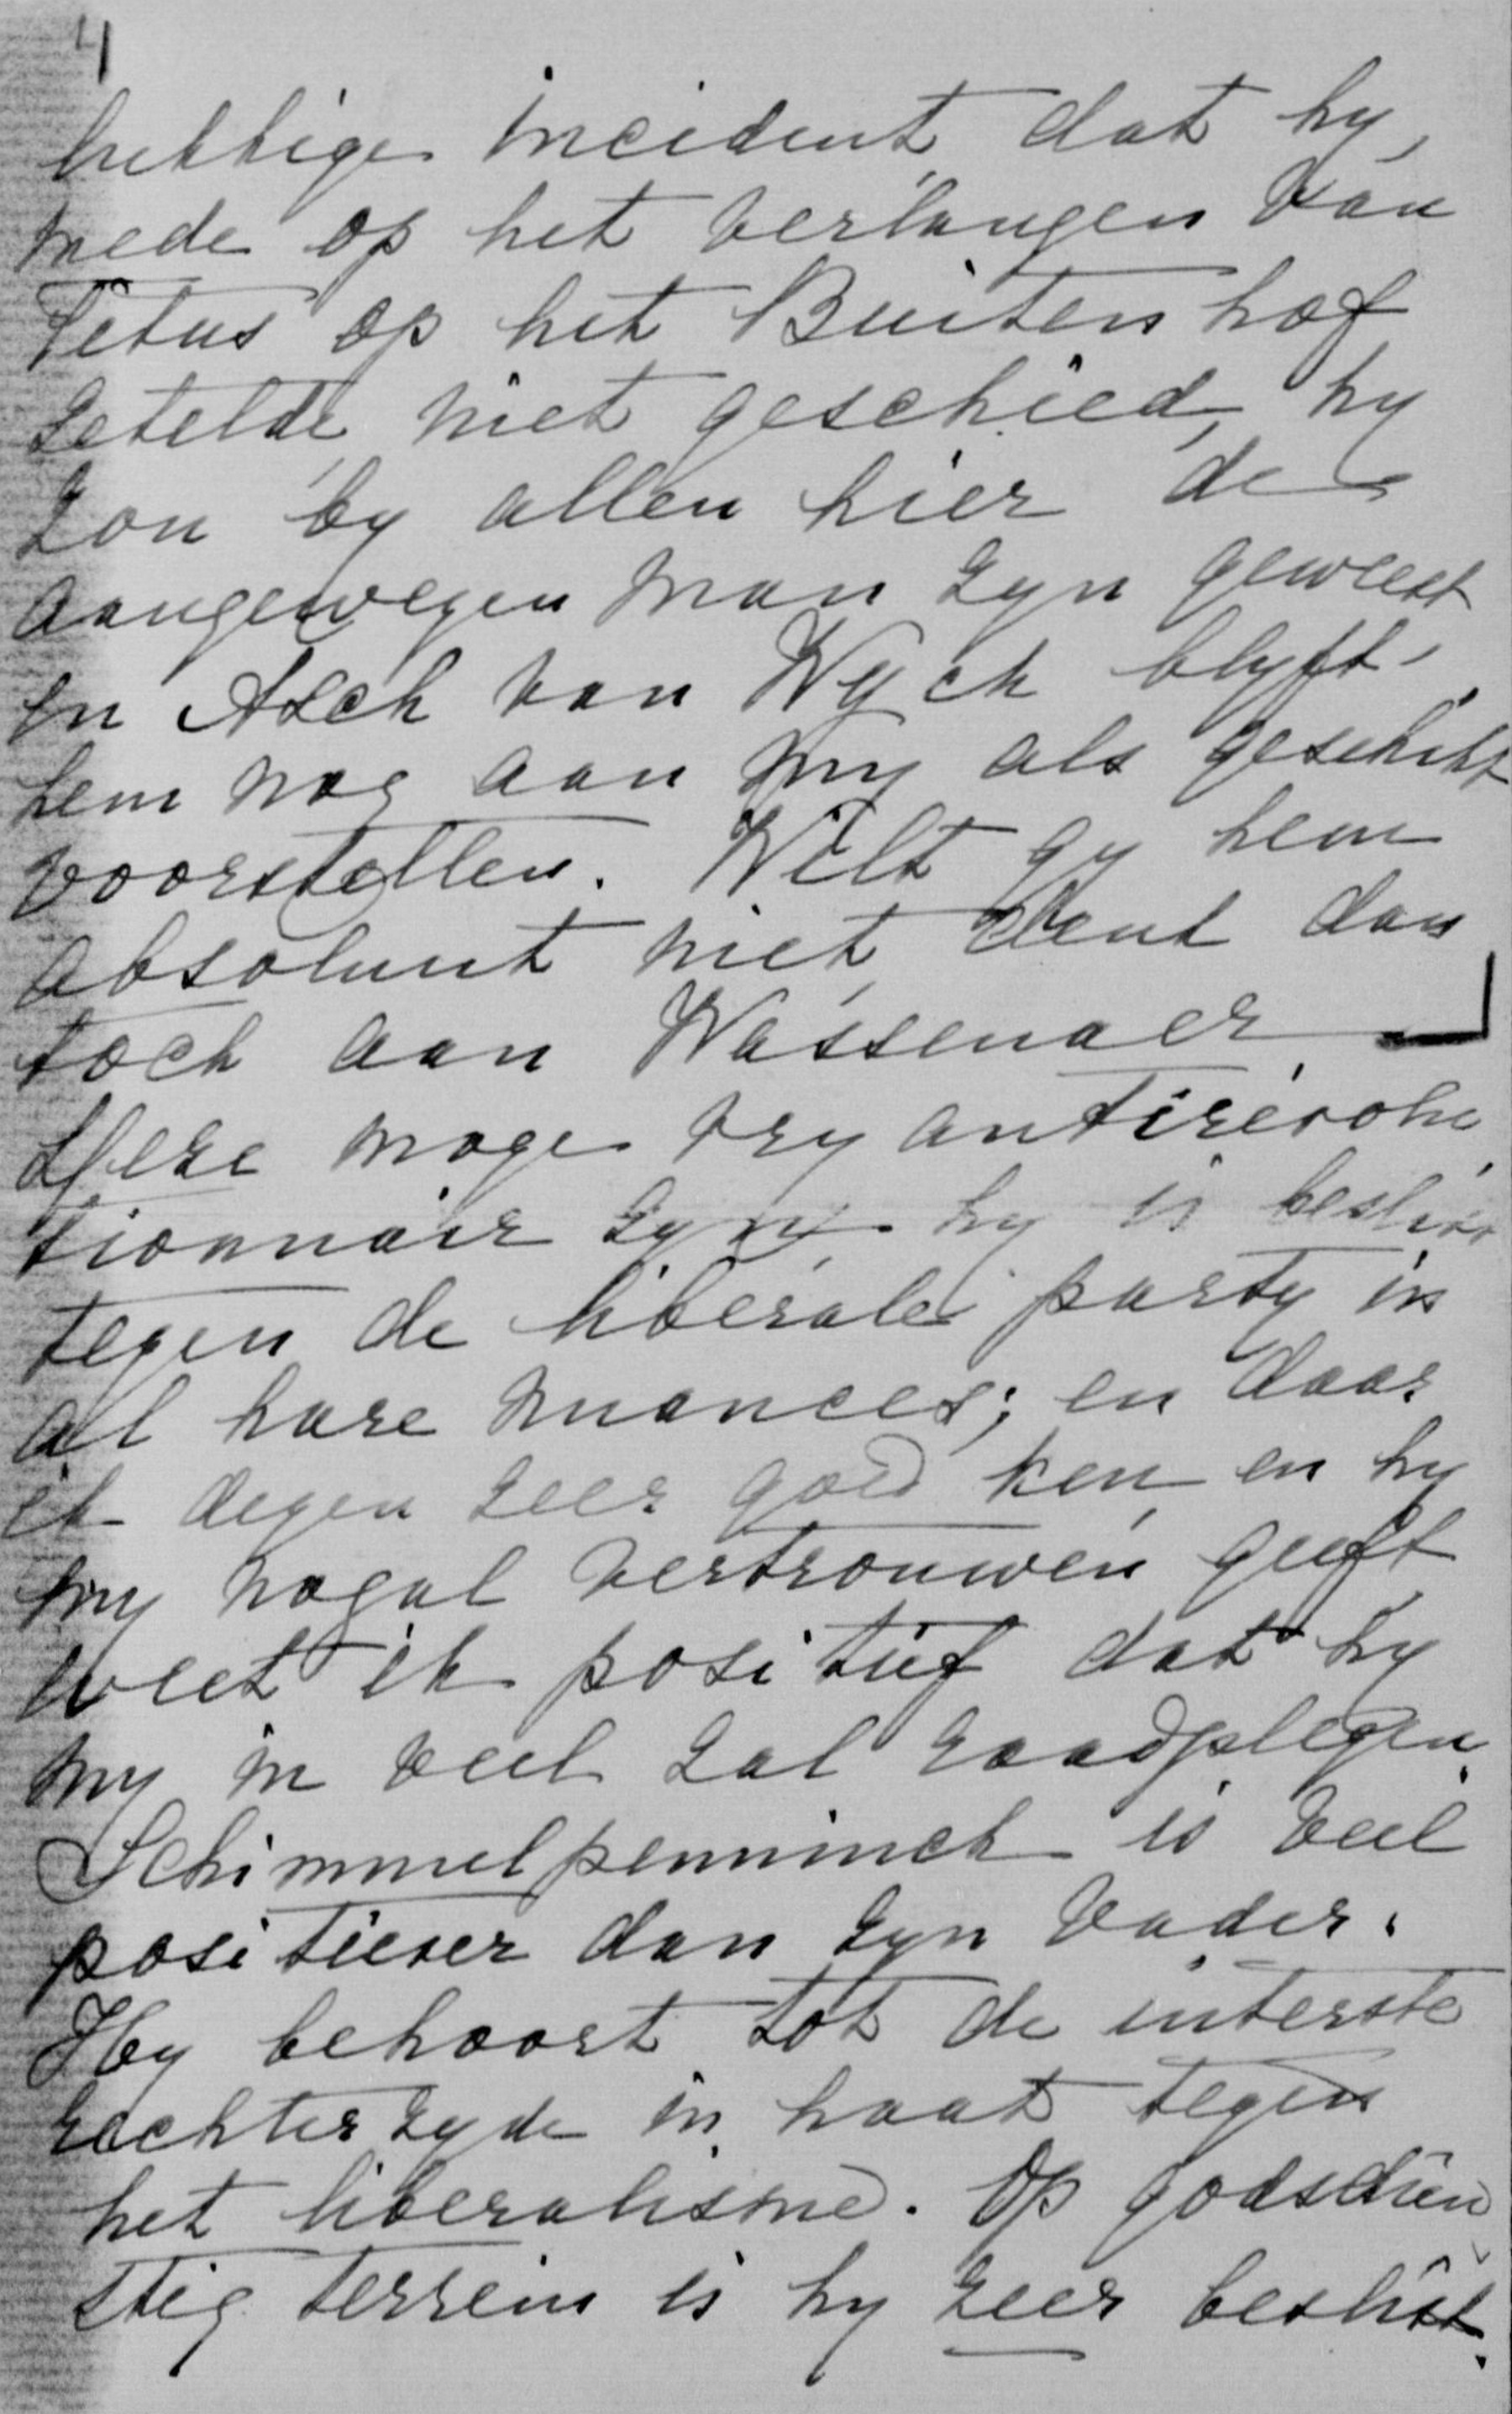 4
incident, dat hy,
mede op het verlangen van
Titus op het Buitenhof
zetelde niet geschied, hy
zou by allen hier de
aangewezen man zyn geweest
en Asch van Wyck blyft
hem nog aan my als geschikt
voorstellen. Wilt gy hem
absoluut niet, denk dan
toch aan Wassenaer.
Deze moge vry antirevolu
tionnair zyn, hy is beslist
tegen de liberale party in
al hare nuances; en daar
ik dezen zeer goed ken, en hy
my nogal vertrouwen geeft
weet ik positief dat hy
my in veel zal raadplegen.
Schimmelpenninck is veel
positiever dan zyn vader.
Hy behoort tot de uiterste
rechterzyde in haat tegen
het liberalisme. Op godsdien
stig terrein is hy zeer beslist.